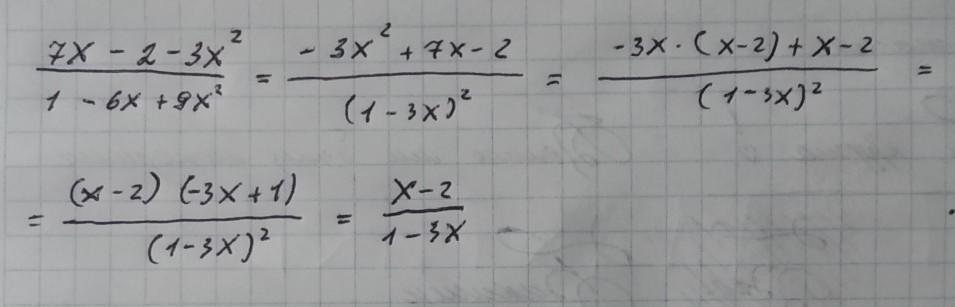 (7x - 2 - 3x²)/(1 - 6x + 9x²) = (- 3x² + 7x - 2)/((1 - 3x)²) = (-3x · (x-2) + x - 2)/((1-3x)²) =
= ((x - 2) (-3x + 1))/((1-3x)²) = (x - 2)/(1 - 3x)